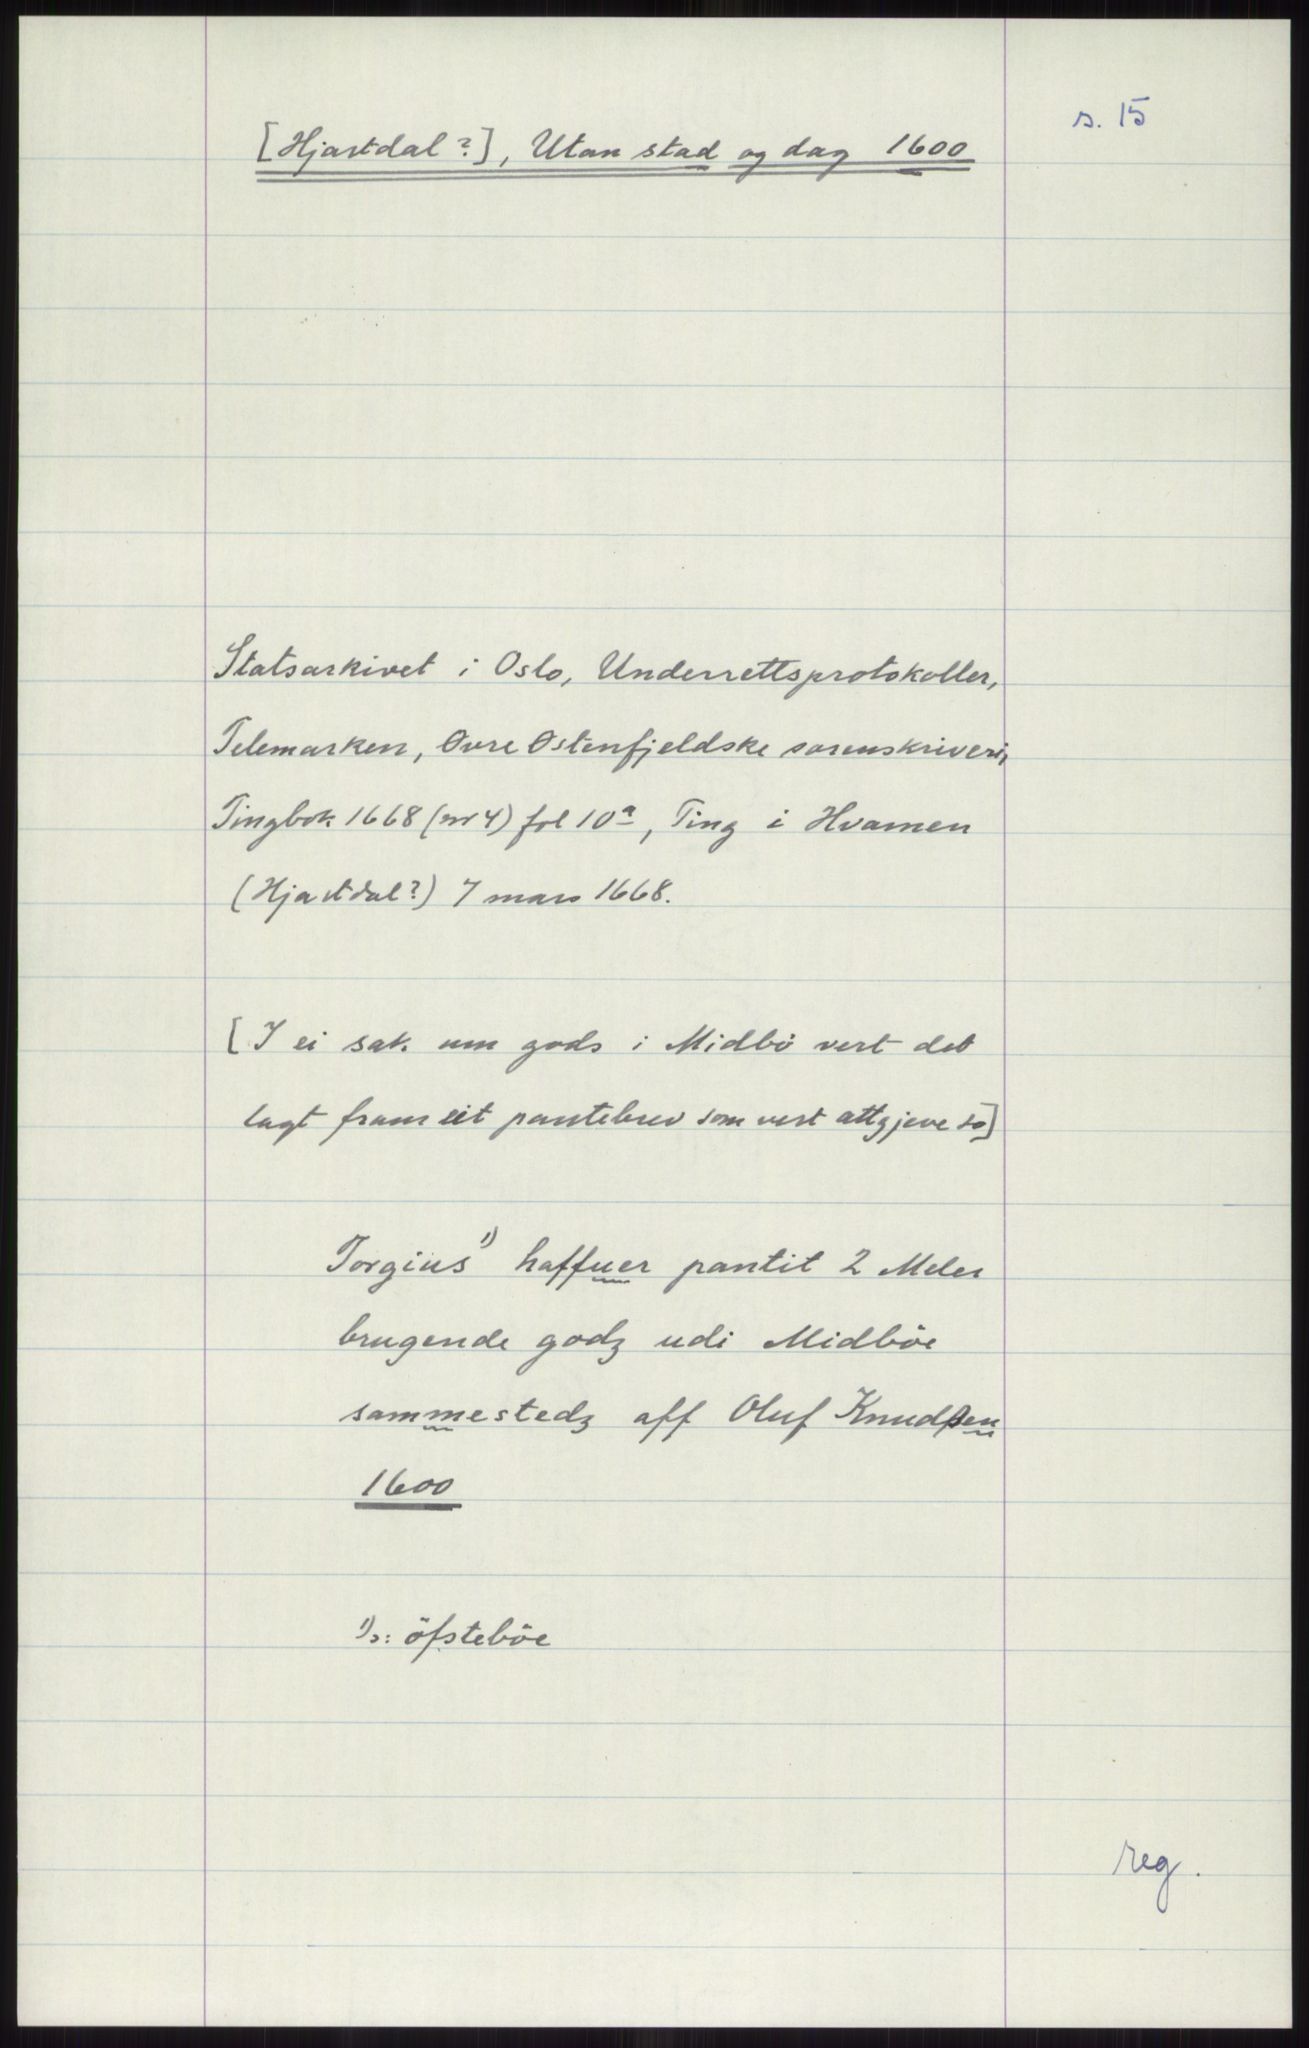 s. 15
[Hjartdal?], Utan stad og dag 1600
Statsarkivet i Oslo, Underrettsprotokoller,
Telemarken, Øvre Østenfjeldske sorenskriveri,
Tingbok 1668 (nr 4) fol 10ª, Ting i Hvamen
(Hjartdal?) 7 mars 1668.
[I ei sak um gods i Midbö vert det
lagt fram eit pantebrev som vert attgjeve so]
Torgius ¹⁾ haffuer pantit 2 Meler
brugende godz udi Midböe
sammestedz aff Oluf Knudßen
1600
¹⁾ɔ: öfsteböe
reg.